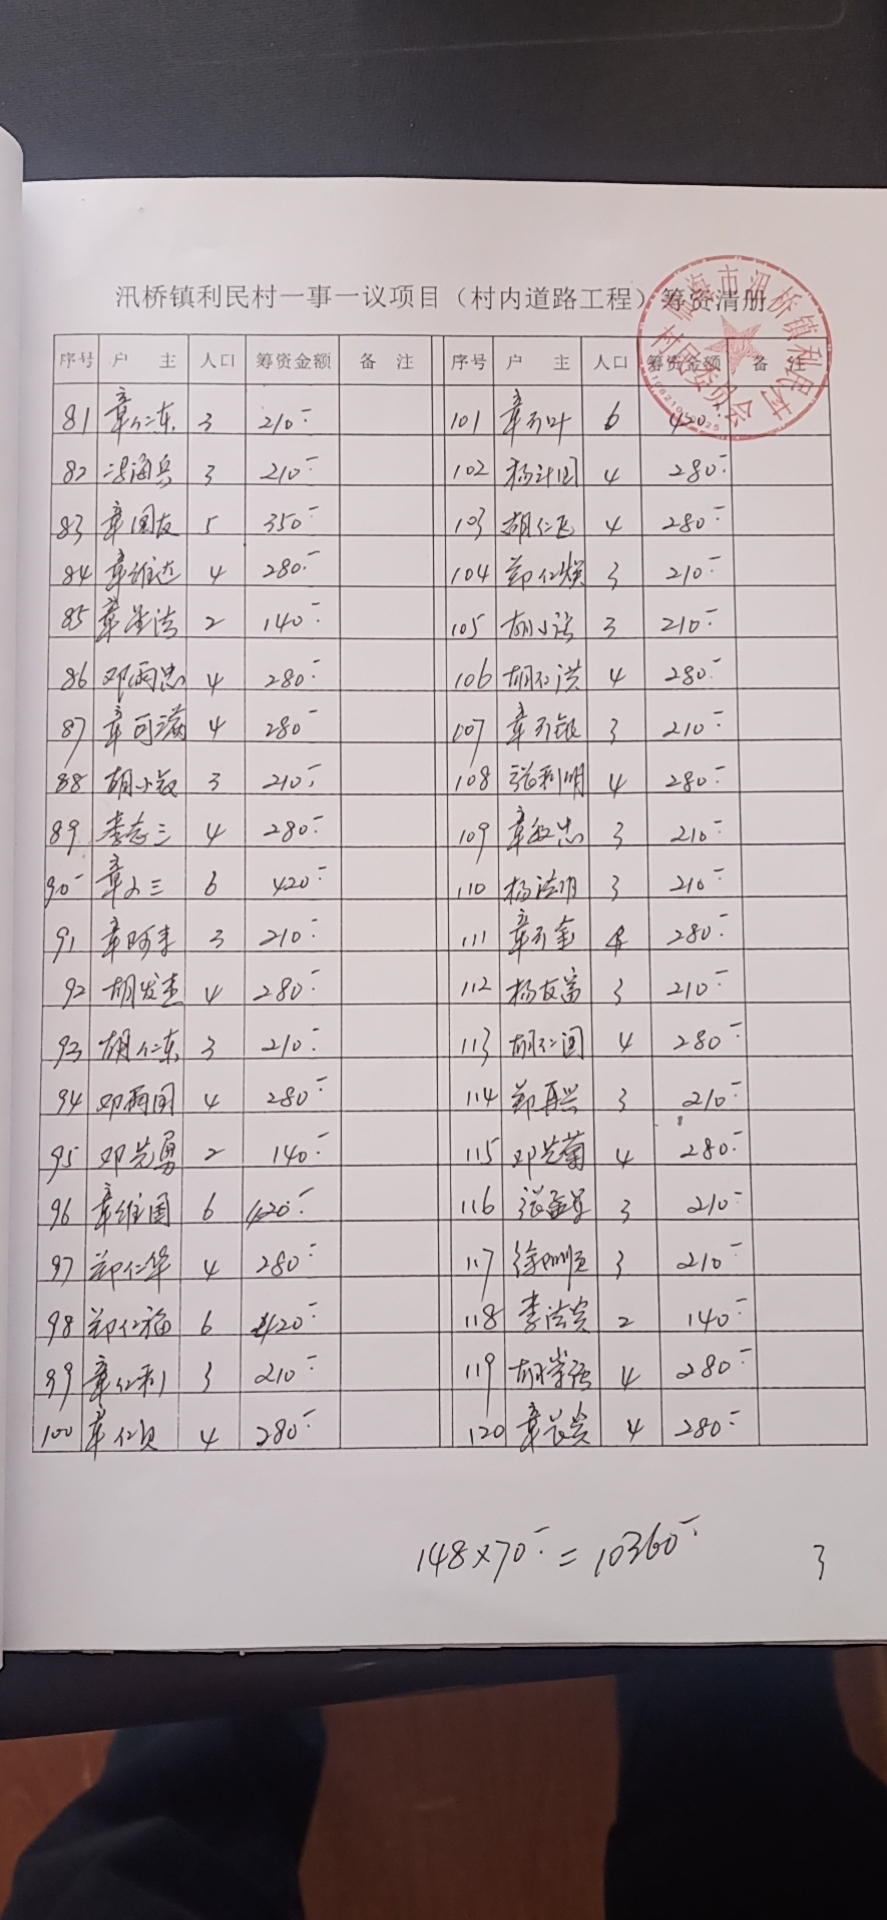 汛桥镇利民村一事一议项目（村内道路工程）筹资清册
序号 户 主 人口 筹资金额 备 注 序号 户 主 人口 筹资金额 备 注
81 章仁东 3 210 101 章 叶 6 420
82 海兵 3 210 102 杨计国 4 280
83 章国友 5 350 103 胡仁飞 4 280
84 章维达 4 280 104 郑仁 3 210
85 章 法 2 140 105 胡小 3 210
86 邓雨忠 4 280 106 胡仁洪 4 280
87 章可满 4 280 107 章 银 3 210
88 胡小 3 210 108 张利明 4 280
89 李志三 4 280 109 章 忠 3 210
90 章 三 6 420 110 杨法 3 210
91 章阿 3 210 111 章 金 4 280
92 胡发 4 280 112 杨友富 3 210
93 胡仁东 3 210 113 胡仁国 4 280
94 邓雨国 4 280 114 郑再兴 3 210
95 邓 勇 2 140 115 邓 菊 4 280
96 章维国 6 420 116 张 3 210
97 郑仁华 4 280 117 徐 顺 3 210
98 郑仁福 6 420 118 李法 2 140
99 章仁利 3 210 119 胡 强 4 280
100 章仁 4 280 120 章 4 280
148×70=10360
3
临海市汛桥镇利民村
村民委员会